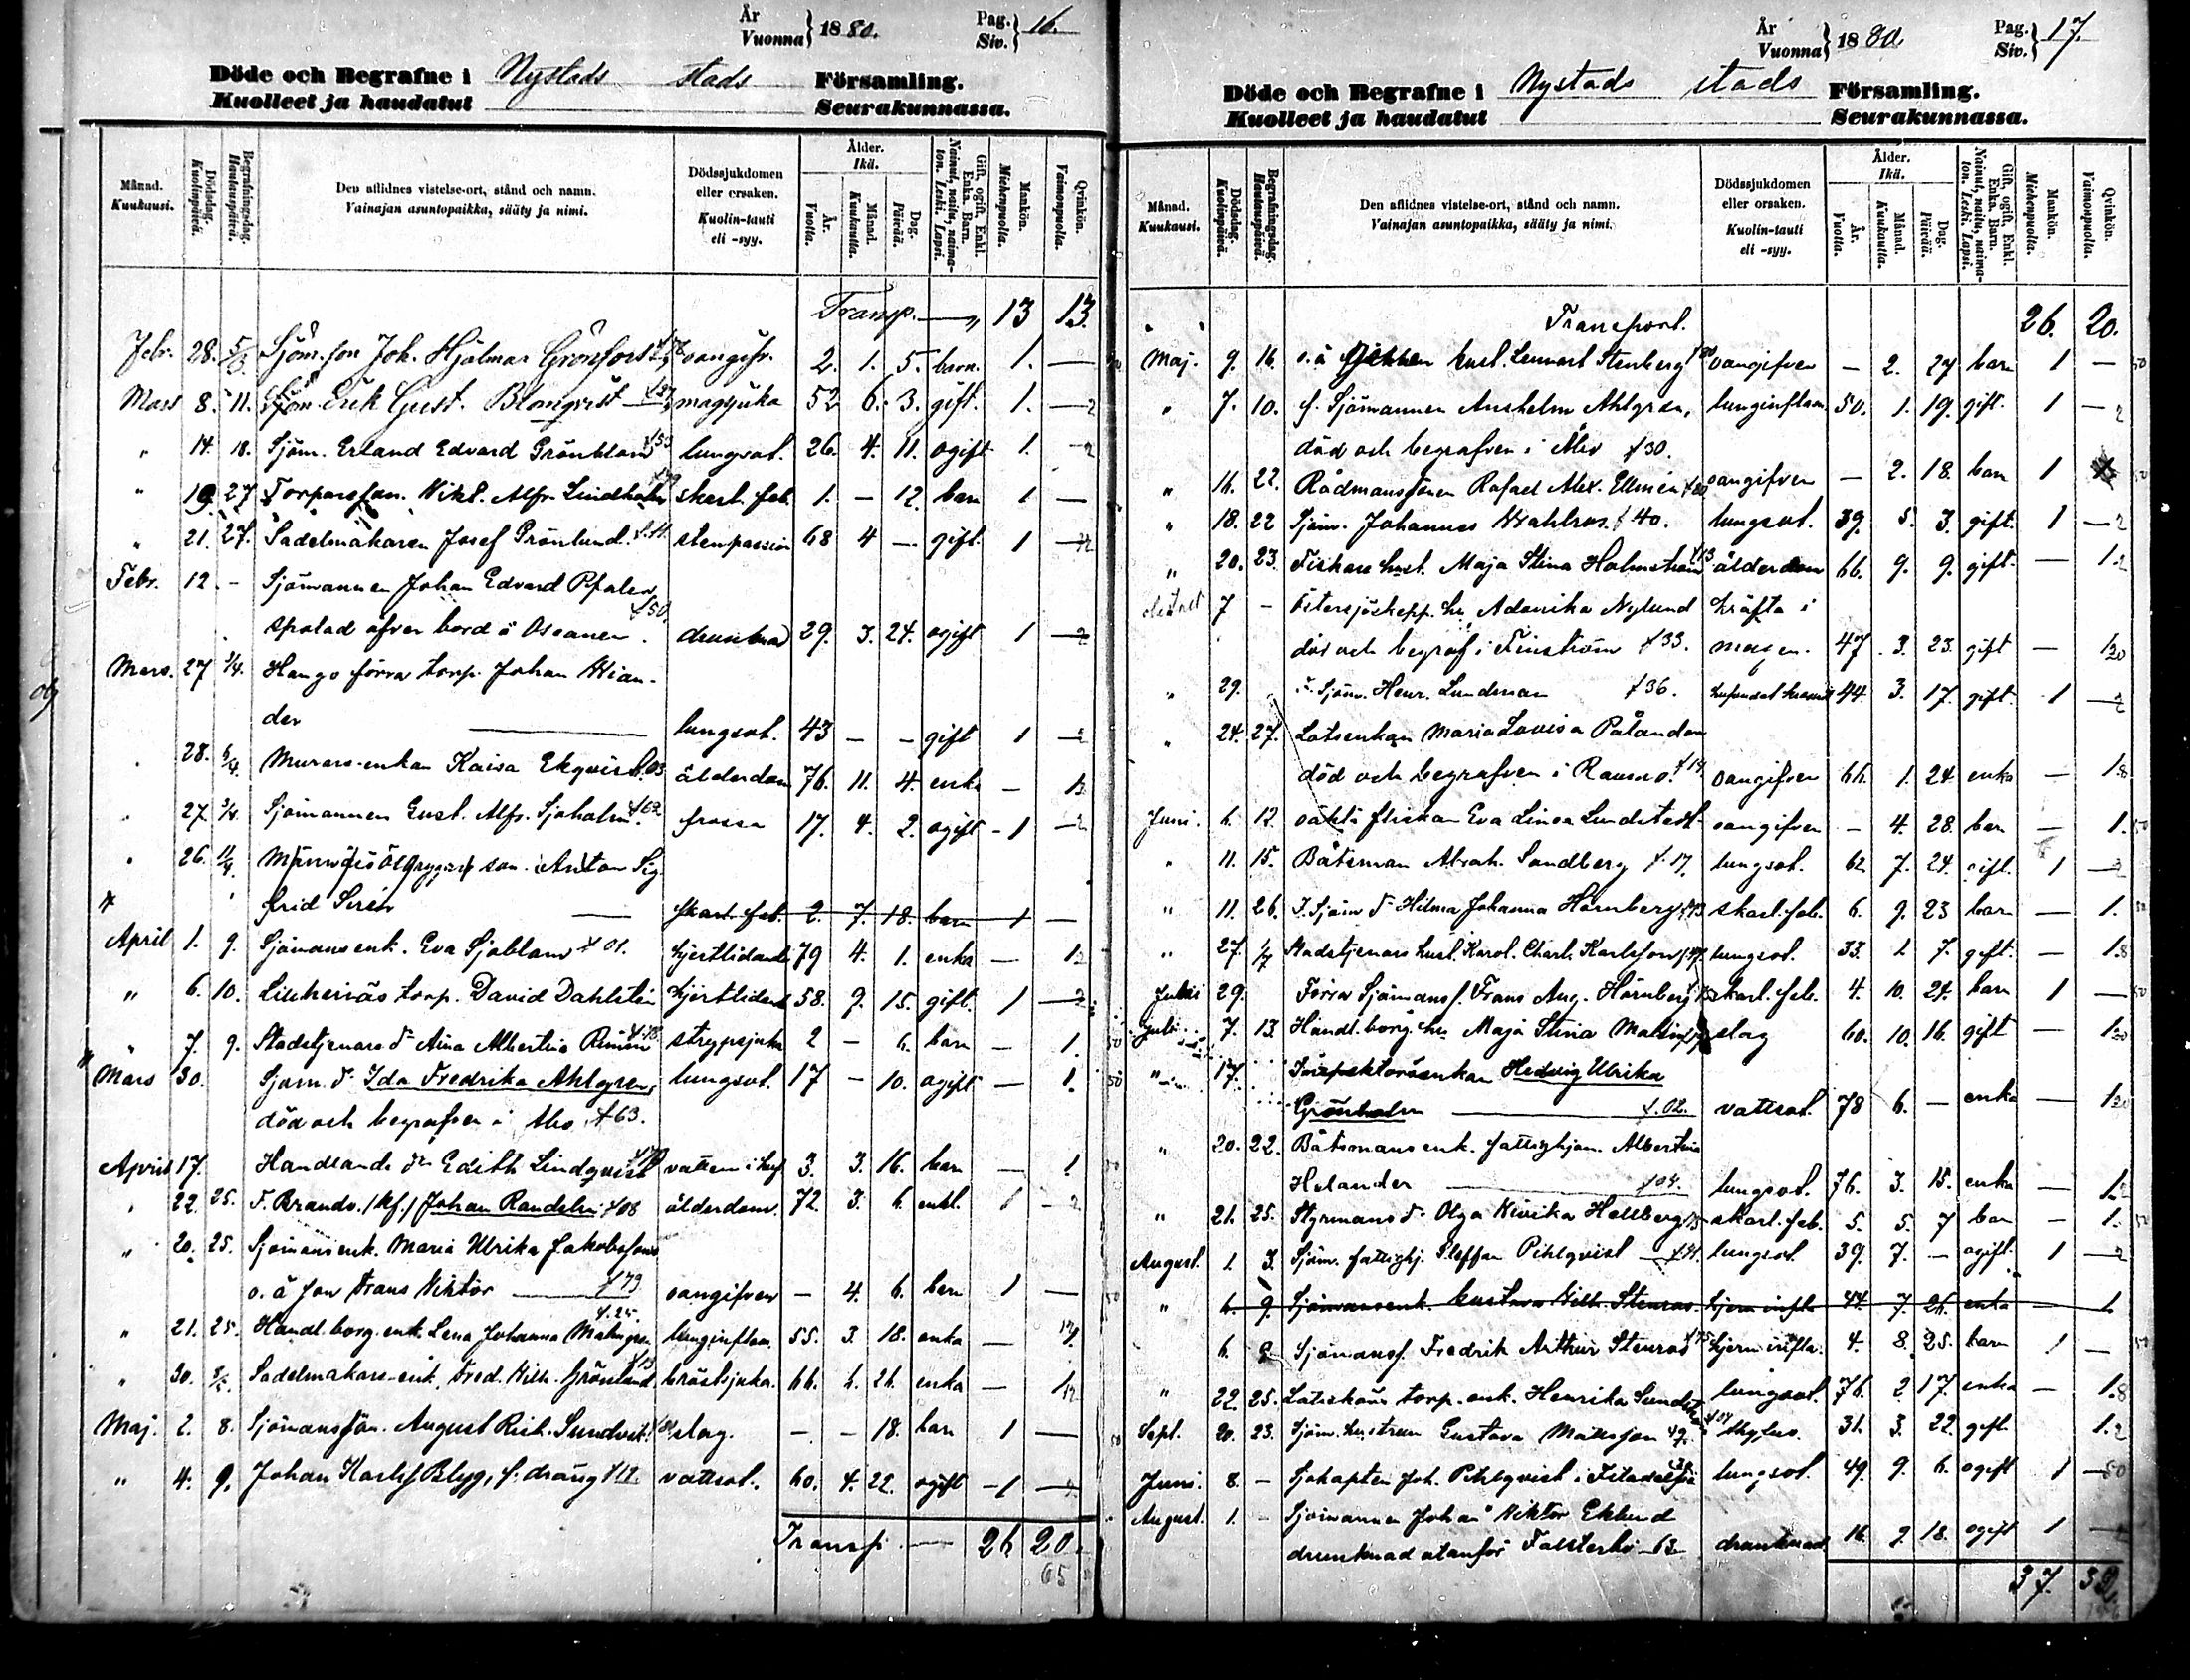 År
Vuonna } 1880.
Pag.
Siv. } 16.
Döde och Begrafne i Nystads stads Församling.
Kuolleet ja haudatut Seurakunnassa.
Månad. Kuukausi.
Dödsdag. Kuolinpäivä.
Begrafningsdag. Hautauspäivä.
Den aflidnes vistelse-ort, stånd och namn.
Vainajan asuntopaikka, sääty ja nimi.
Dödssjukdomen eller orsaken.
Kuolin-tauti eli -syy.
Ålder. Ikä.
År. Vuotta.
Månad. Kuukautta.
Dag. Päivää.
Gift, ogift, Enkl. Enka. Barn.
Nainut, naitu, naimaton. Leski. Lapsi.
Mankön. Miehenpuolta.
Qvinkön. Vaimonpuolta.
Transp. — 13 13.
Febr. 28. 5/3 Sjöm. son Joh. Hjalmar Grönfors oangifv. 2. 1. 5. barn. 1. —
Mars 8. 11. Sjöm. Erik Gust. Blomqvist magsjuka 52 6. 3. gift. 1. —
" 14. 18. Sjöm. Erland Edvard Grönblom lungsot. 26. 4. 11. ogift 1. —
" 19. 27 Torpareson. Vikt. Alfr. Lindholm skarl. feb. 1. — 12. barn 1 —
" 21. 27. Sadelmakaren Josef Grönlund. stenpassion 68 4 — gift. 1 —
Febr. 12. - Sjömannen Johan Edvard Pfaler
spolad öfver bord å Oceanen. †50. drunknad 29. 3. 24. ogift 1 —
Mars. 27 1/4. Hango förra torp. Johan Wian-
der — lungsot. 43 — — gift 1 —
" 28. 6/4 Murare-enkan Kaisa Ekqvist. 03 ålderdom 76. 11. 4. enka — 1
" 27. 1/4. Sjömannen Gust. Alfr. Sjöholm. †62 frossa 17. 4. 2. ogift - 1 —
" 26. 11/4 son. Anton Sig
frid Sirén — skarl. feb. 2. 7. 18. barn 1 —
April 1. 9. Sjömansenk. Eva Sjöblom † 01. hjertlidande 79 4. 1. enka — 1
" 6. 10. torp. David Dahlstén hjertlidand 58. 9. 15. gift. 1 —
" 7. 9. Stadstjenare d. Aina Albertina strypsjuka 2 — 6. barn — 1.
Mars 30. Sjöm. d. Ida Fredrika Ahlgren, lungsot. 17 — 10. ogift — 1.
död och begrafven i Åbo †63.
April 17. Handlande dr Edith Lindqvist vatten i huf 3. 3. 16. barn — 1
" 22. 25. F. Brandv. /kf./ Johan Randelin †08 ålderdom. 72. 3. 6. enkl. 1 —
" 20. 25. Sjömansenk. Maria Ulrika Jakobsons
o. ä son Frans Viktor — †79 oangifven — 4. 6. barn 1 —
" 21. 25. Handl. borg. enk. Lena Johanna Malmgren †.25. lunginflam. 55. 3. 18. enka — 1
" 30. 8/5. Sadelmakare-enk. Fred. Wilh. Grönlund †13 bröstsjuka. 66. 6. 26. enka — 1
Maj. 2. 8. Sjömansson. August Rich. Sundvik. slag. — — 18. barn 1 —
" 4. 9. Johan Karlss. Blygg, f. dräng vattsot. 60. 4. 22. ogift - 1 —
Transp. — 26 20.
65
År
Vuonna } 1880
Pag.
Siv. } 17.
Döde och Begrafne i Nystads stads Församling.
Kuolleet ja haudatut Seurakunnassa.
Månad. Kuukausi.
Dödsdag. Kuolinpäivä.
Begrafningsdag. Hautauspäivä.
Den aflidnes vistelse-ort, stånd och namn.
Vainajan asuntopaikka, sääty ja nimi.
Dödssjukdomen eller orsaken.
Kuolin-tauti eli -syy.
Ålder. Ikä.
År. Vuotta.
Månad. Kuukautta.
Dag. Päivää.
Gift, ogift, Enkl. Enka. Barn.
Nainut, naitu, naimaton. Leski. Lapsi.
Mankön. Miehenpuolta.
Qvinkön. Vaimonpuolta.
Transport. 26. 20.
Maj. 9. 16 o. ä Gust. Lennart Stenberg †80 oangifven — 2. 27 barn 1 —
" 7. 10. f. Sjömannen Anshelm Ahlgren, lunginflam. 50. 1. 19. gift. 1 —
död och begrafven i Åbo †30.
" 16. 22. Rådmanssonen Rafael Alex. Ellmén †80 oangifven — 2. 18. barn 1
" 18. 22 Sjöm. Johannes Wahlros. † 40. lungsot. 39. 5. 3. gift. 1 —
" 20. 23. Fiskare hust. Maja Stina Holmström †13 ålderdom 66. 9. 9. gift. — 1
7 - Östersjöskepp. hu. Adamika Nylund kräfta i
död och begraf. i Finström †33. magen. 47. 3. 23. gift — 1
" 29. f. Sjöm. Henr. Lundman †36. 44. 3. 17. gift. 1 —
" 24. 27. Lotsenkan Maria Lovisa Pålander
död och begrafven i Raumo. †14 oangifven 66. 1. 24. enka — 1
Juni. 6. 12 oäkta flickan Eva Linea Lundstedt oangifven — 4. 28. barn — 1.
" 11. 15. Båtsman Abrah. Sandberg †.17. lungsot. 62 7. 24. gift. 1 —
" 11. 26. F. Sjöm d. Hilma Johanna Hörnberg skarl. feb. 6. 9. 23 barn — 1.
" 27. 1/7 Stadstjenare hust. Karol. Charl. Karlsson lungsot. 33. 1 7. gift. — 1
Juni 29. Förra Sjömans s. Frans Aug. Hörnberg skarl. feb. 4. 10. 24. barn 1 —
Juli. 7. 13 Handl. borg. hu Maja Stina Malmsj slag 60. 10. 16. gift — 1
" 17. Inspektorsenkan Hedvig Ulrika
Grönholm — †.02. vattsot. 78 6. — enka — 1
" 20. 22. Båtsmansenk. fattighjon. Albertina
Helander — †04. lungsot. 76. 3. 15. enka — 1.
" 21. 25. Styrmans d. Olga Hellberg skarl. feb. 5. 5. 7 barn — 1.
August. 1. 3. Sjöm. fattighj. Steffan Pihlqvist — †41. lungsot. 39. 7. — ogift. 1 —
" 6. 9. Sjömansenk. Gustava Wilh. Stenros. hjerninfla 44. 7. 26. enka — 1
6. 9 Sjömanss. Fredrik Arthur Stenros †75 hjerninfla. 4. 8. 25. barn 1 —
" 22. 25. torp. enk. Henrika lungsot. 76. 2 17. enka — 1.
Sept. 20. 23. Sjöm. hustrun Gustava Mattsson 49. 31. 3. 22. gift 1.
Juni. 8. - Sjökapten Joh. Pihlqvist i Filadelfia lungsot. 49. 9. 6. ogift 1 —
August. 1. - Sjömannen Johan Viktor Eklund
drunknad utanför Falsterbo 63 drunknad 16. 9. 18. ogift 1 —
37.